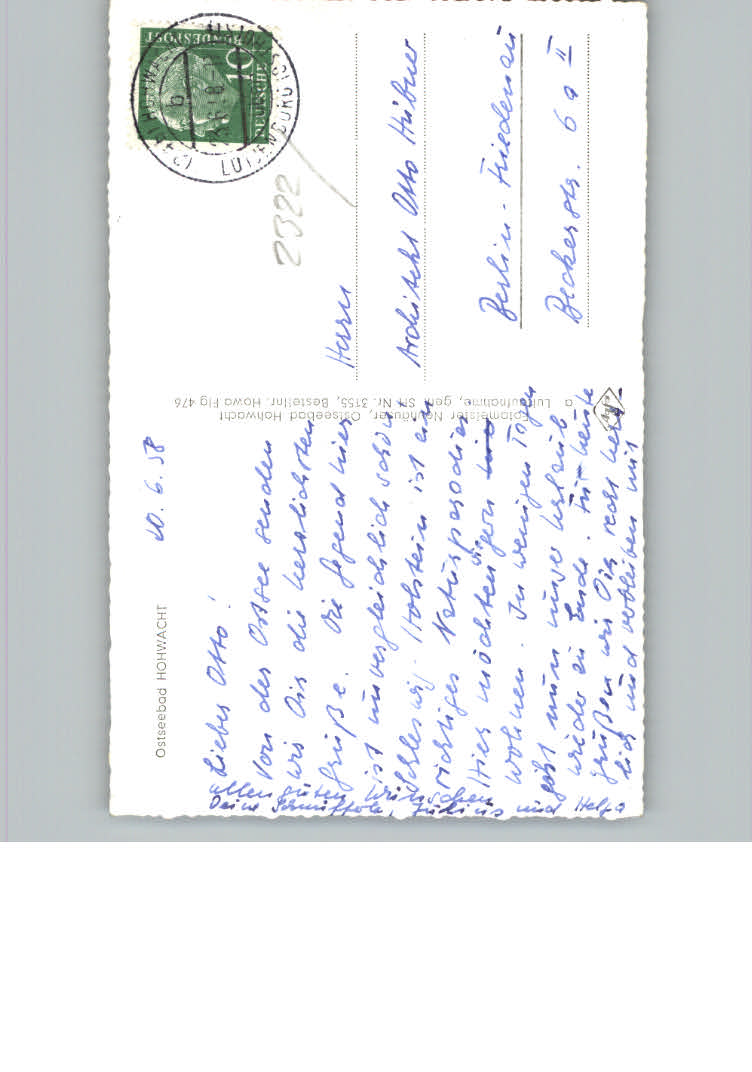 Ostseebad HOHWACHT
10. 6. 58
Lieber Otto!
Von der Ostsee senden
wir Dir die herzlichsten
Grüße. Die Gegend hier
ist unvergleichlich schön.
Schleswig-Holstein ist ein
richtiges Naturparadies
Hier möchten wir gern
wohnen. In wenigen Tagen
geht nun unser Urlaub
wieder zu Ende. Für heute
grüßen wir Dich recht herz-
lich und verbleiben mit
allen guten Wünschen
Deine Julius und Helga
Fotomeister Neuhäuser, Ostseebad Hohwacht
Luftaufnahme, gen. SH Nr. 3155, Bestellnr. Howa Flg 476
Agfa
DEUTSCHE
BUNDESPOST
10
LÜTJENBURG
b
2322
Herrn
Architekt Otto Hübner
Berlin-Friedenau
Beckerstr. 6a II